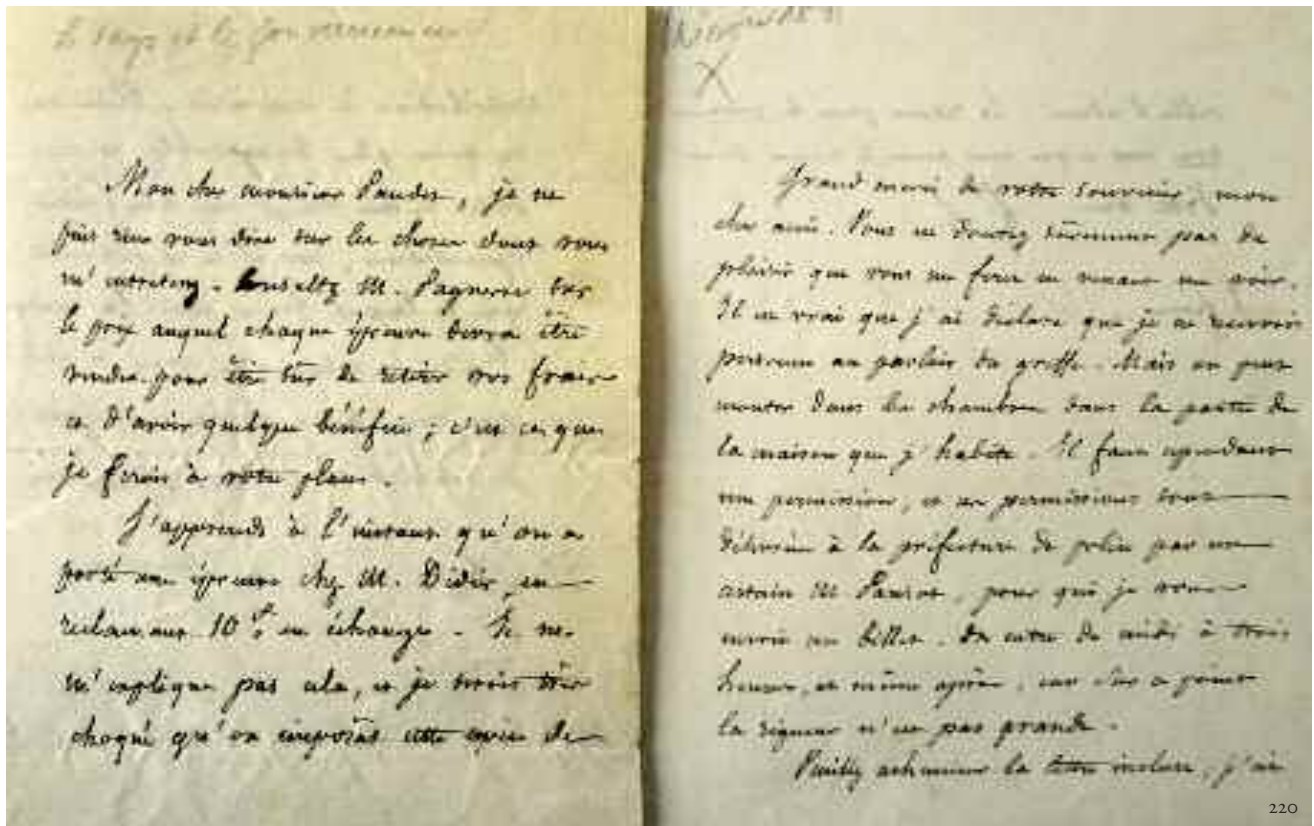 Le pays et le gouvernement
Mon cher monsieur Paudex, je ne
puis rien vous dire sur les choses dont vous
m'entretenez. Consultez M. Pagnerre sur
le prix auquel chaque épreuve devra être
vendue pour être sûr de retirer vos frais
et d'avoir quelque bénéfice ; c'est ce que
je ferais à votre place.
J'apprends à l'instant qu'on a
porté une épreuve chez M. Didier, en
réclamant 10 f. en échange. Je ne
m'explique pas cela, et je serais très
choqué qu'on imposât cette envie de
X
Grand merci de votre souvenir, mon
cher ami. Vous ne doutez sûrement pas du
plaisir que vous me ferez en venant me voir.
Il est vrai que j'ai déclaré que je ne recevrois
personne au parloir du greffe. Mais on peut
monter dans la chambre dans la partie de
la maison que j'habite. Il faut cependant
une permission, et ces permissions sont
délivrées à la préfecture de police par un
certain M. Pariset, pour qui je vous
envoie un billet. On entre de midi à trois
heures, et même après, car sur ce point
la rigueur n'est pas grande.
Veuillez acheminer la lettre incluse, j'ai
220